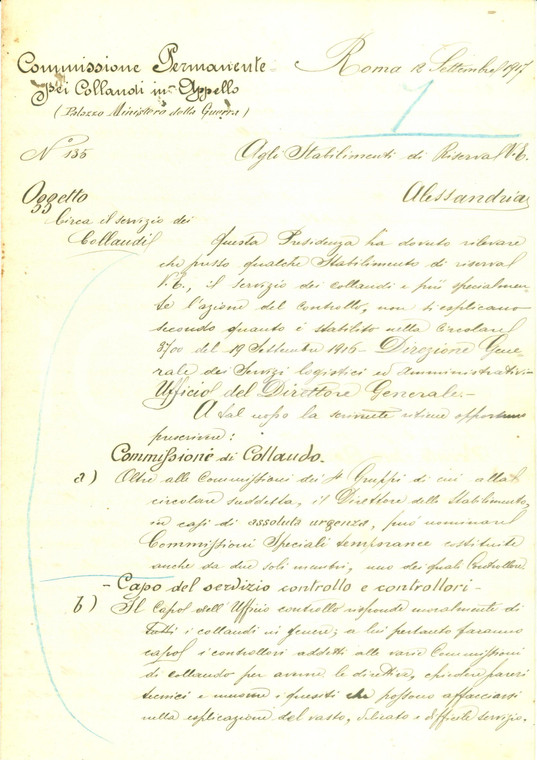 Commissione Permanente
Roma 12 Settembre 1917
pei Collandi in Appello
(Palazzo Ministero della Guerra)
1
N° 135
Agli Stabilimenti di Riserva V.E.
Oggetto
Alessandria
Circa il servizio dei
Collaudi
Questa Presidenza ha dovuto rilevare
che presso qualche Stabilimento di riserva
V.E., il servizio dei collaudi e più specialmen-
te l'azione del controllo, non si esplicano
secondo quanto è stabilito nella circolare
3700 del 19 Settembre 1916 - Direzione Gene-
rale dei Servizi logistici ed amministrativi -
Ufficio del Direttore Generale. -
A tal uopo la scrivente ritiene opportuno
prescrivere:
Commissione di Collaudo.
a) Oltre alle Commissioni dei Gruppi di cui alla
circolare suddetta, il Direttore dello Stabilimento,
in casi di assoluta urgenza, può nominare
Commissioni Speciali temporanee costituite
anche da due soli membri, uno dei quali Controllore.
- Capo del servizio controllo e controllori -
b) Il Capo dell'Ufficio controllo risponde moralmente di
tutti i collaudi in genere; a lui pertanto faranno
capo i controllori addetti alle varie Commissioni
di collaudo per averne le direttive, chiedere pareri
tecnici e i quesiti che possono affacciarsi
nella esplicazione del vasto, delicato e difficile servizio.